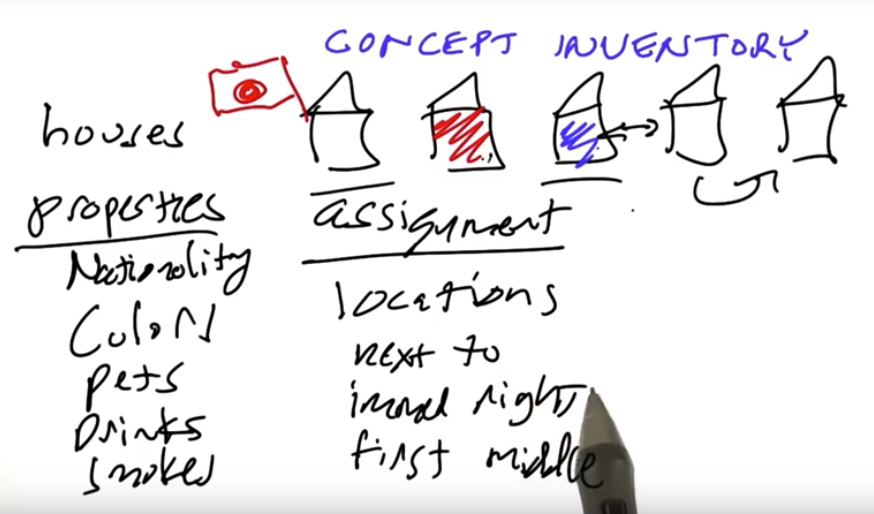 CONCEPT INVENTORY
houses
properties
Nationality
Color
pets
Drinks
smokes
assignment
locations
next to
immed right
first middle